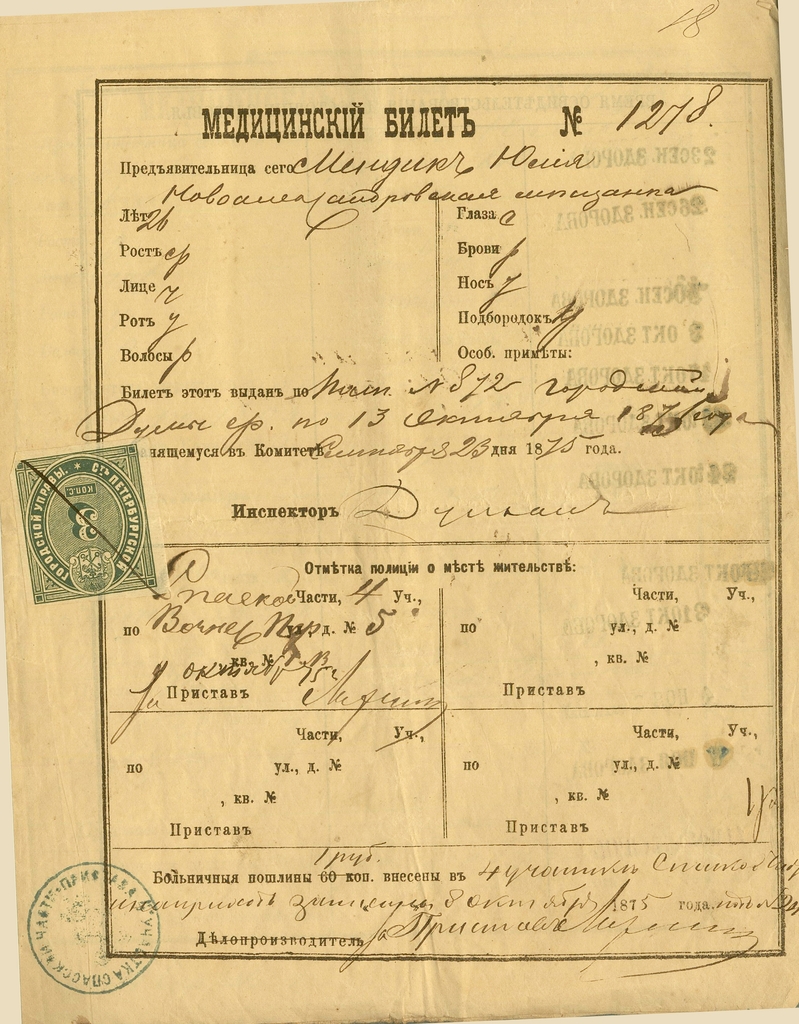 18
МЕДИЦИНСКІЙ БИЛЕТЪ № 1278.
Предъявительница сего Мендикъ Юлія
Новоалександровская мѣщанка
Лѣтъ 26
Глаза с
Ростъ ср
Брови р
Лице ч
Носъ у
Ротъ у
Подбородокъ у
Волосы р
Особ. примѣты:
Билетъ этотъ выданъ по № 872 городской
Думы ср. по 13 Октября 1875 года
нящемуся въ Комитетѣ Сентября 23 дня 1875 года.
Инспекторъ
С.ТЪ ПЕТЕРБУРГСКОЙ ГОРОДСКОЙ УПРАВЫ.
3
КОП.С.
Отмѣтка полиціи о мѣстѣ жительствѣ:
Спаской Части, 4 Уч.,
по ул., д. № 5
кв. №
октября 75 г.
За Приставъ
Части, Уч.,
по ул., д. №
, кв. №
Приставъ
Части, Уч.,
по ул., д. №
, кв. №
Приставъ
Части, Уч.,
по ул., д. №
, кв. №
Приставъ
1 руб.
Больничныя пошлины 60 коп. внесены въ 4 участкѣ Спаской
8 Октября 1875 года.
Дѣлопроизводитель за Приставъ
ПРИСТАВА 4 УЧАСТКА СПАССКОЙ ЧАСТИ